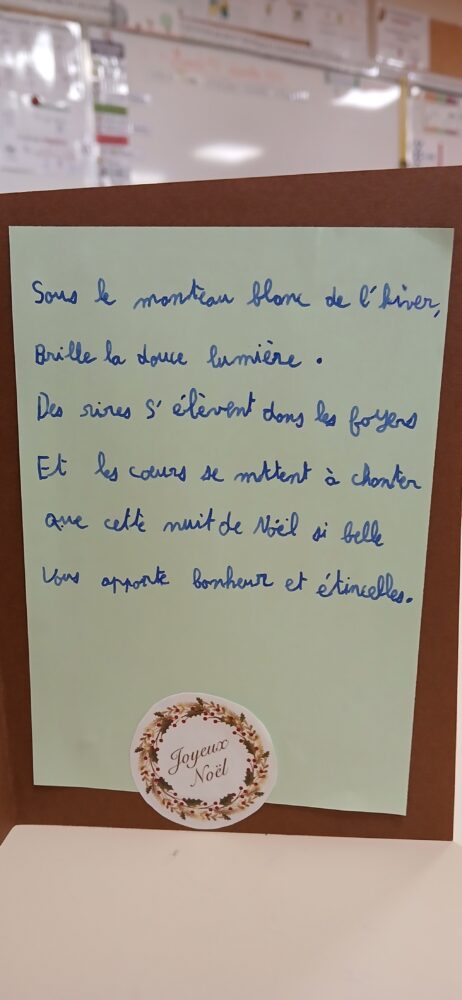 Sous le manteau blanc de l'hiver,
Brille la douce lumière.
Des rires s'élèvent dans les foyers
Et les cœurs se mttent à chanter
que cette nuit de Noël si belle
Vous apporte bonheur et étincelles.
Joyeux
Noël